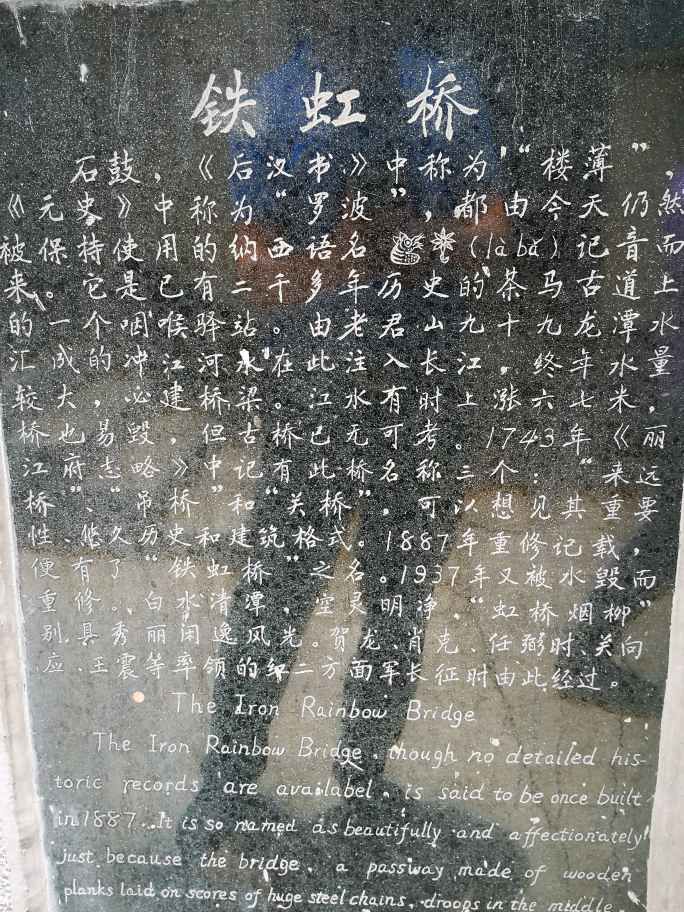 铁虹桥
石鼓，《后汉书》中称为“楼薄”，
《元史》中称为“罗波”，都由今天仍然
被保持使用的纳西语名（làbā）记音而
来。它是已有二千多年历史的茶马古道上
的一个咽喉驿站。由老君山九十九龙潭水
汇成的冲江河水在此注入长江，终年水量
较大，必建桥梁。江水有时上涨六七米，
桥也易毁，但古桥已无可考。1743年《丽
江府志略》中记有此桥名称三个：“来远
桥”、“吊桥”和“关桥”，可以想见其重要
性、悠久历史和建筑格式。1887年重修记载，
便有了“铁虹桥”之名。1937年又被水毁而
重修。白水清潭，空灵明净，“虹桥烟柳”
别具秀丽闲逸风光。贺龙、肖克、任弼时、关向
应、王震等率领的红二方面军长征时由此经过。
The Iron Rainbow Bridge
The Iron Rainbow Bridge, though no detailed his-
toric records are availabel, is said to be once built
in 1887. It is so named as beautifully and affectionately
just because the bridge, a passway made of wooden
planks laid on scores of huge steel chains, droops in the middle